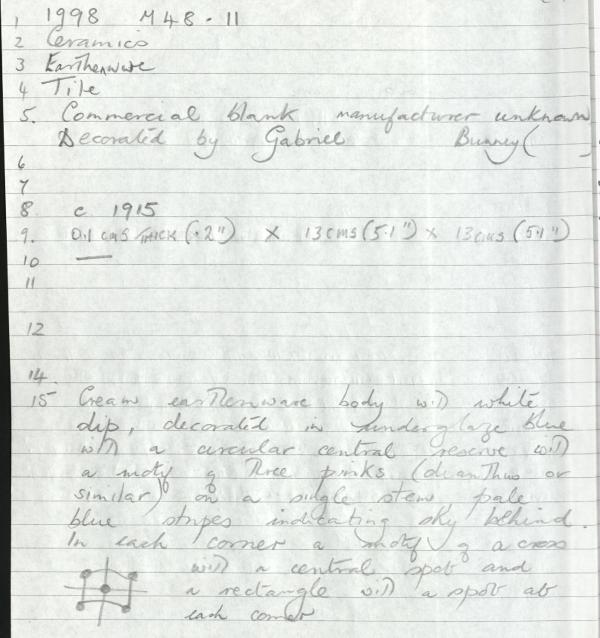 1 1998 M48.11
2 Ceramics
3 Earthenware
4 Tile
5. Commercial blank manufacturer unknown
Decorated by Gabriel Bunney (
6
7
8 c 1915
9. 0.1 cms THICK (.2") X 13cms (5.1") x 13cms (5.1")
10 —
11
12
14.
15 Cream earthenware body with white
dip, decorated in underglaze blue
with a circular central reserve with
a motif of three pinks (dianthus or
similar) on a single stem pale
blue stripes indicating sky behind.
In each corner a motif of a cross
with a central spot and
a rectangle with a spot at
each corner